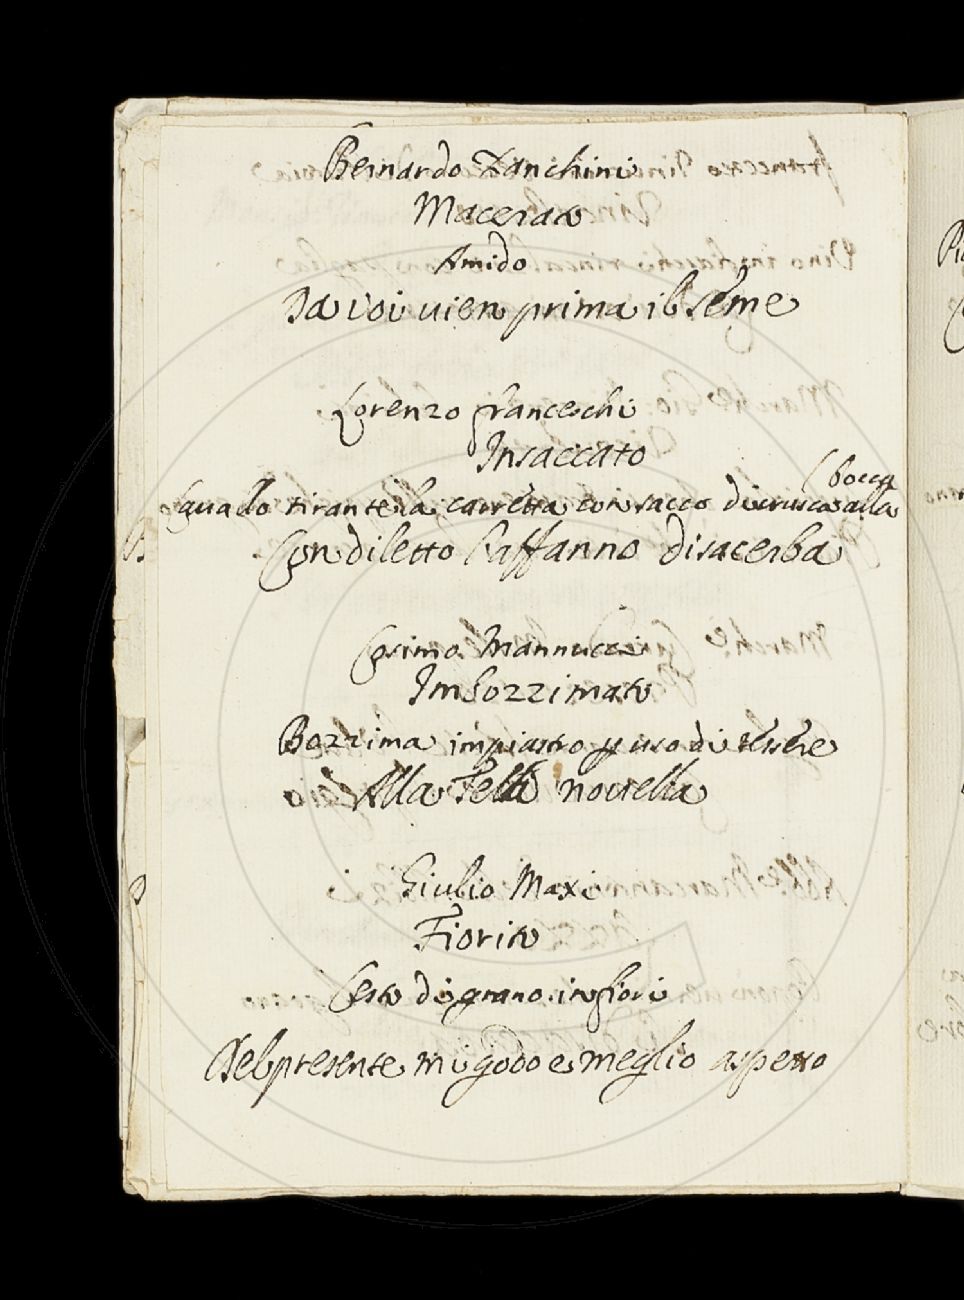 Bernardo Zanchini
Macerato
Amido
Da voi vien prima il seme
Lorenzo franceschi
Insaccato
bocca
Cavallo tirante la carretta con sacco di crusca alla
Con diletto l'affanno disacerba
Cosimo Mannucci
Imbozzimato
Bozzima impiastro p uso di tessere
Alla Tela novella
Giulio Maxi
Fiorito
Cesto di grano in fiori
Del presente mi godo e meglio aspetto